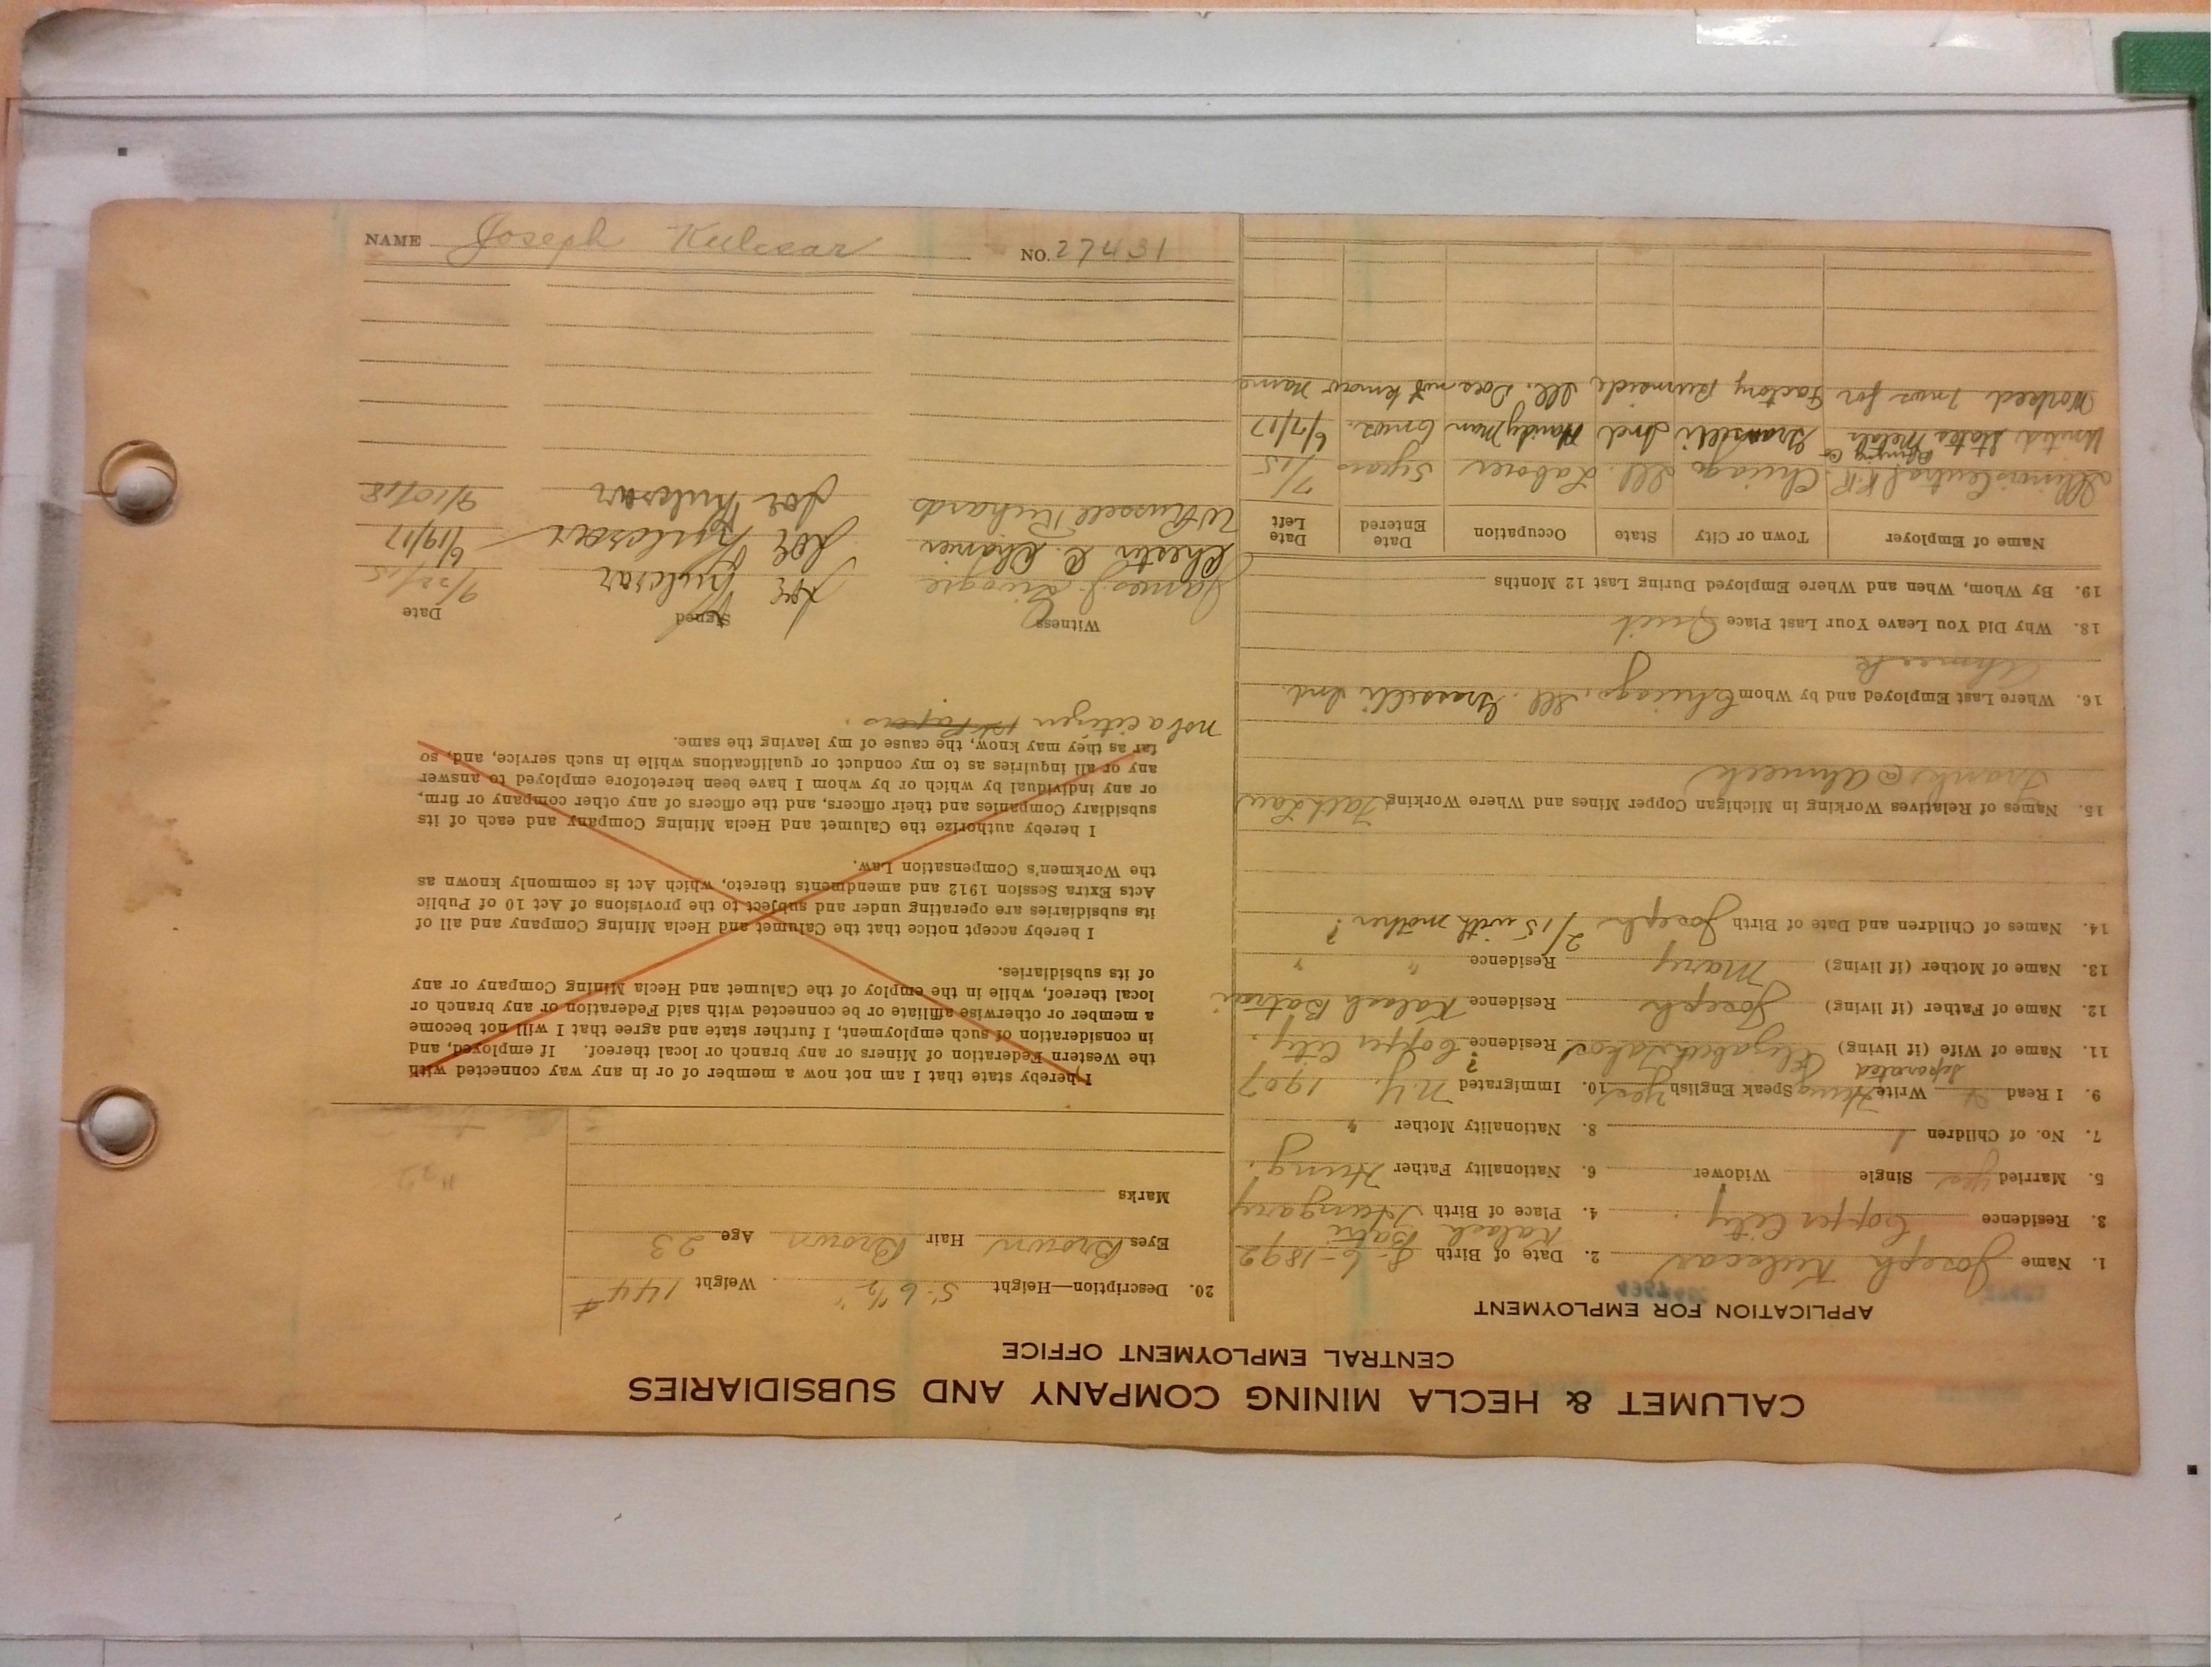 CALUMET & HECLA MINING COMPANY AND SUBSIDIARIES
CENTRAL EMPLOYMENT OFFICE
APPLICATION FOR EMPLOYMENT
1. Name Joseph Kulcsar 2. Date of Birth 8-6-1892
3. Residence Copper City. 4. Place of Birth Hungary
5. Married yes Single Widower 6. Nationality Father Hung.
7. No. of Children 1 8. Nationality Mother "
9. I Read Write Hung Speak English yes 10. Immigrated N.Y. 1907
Separated
11. Name of Wife (if living) Elizabeth Residence Copper City. ?
12. Name of Father (if living) Joseph Residence
13. Name of Mother (if living) Mary Residence " "
14. Names of Children and Date of Birth Joseph 2/15 with mother ?
15. Names of Relatives Working in Michigan Copper Mines and Where Working
Frank @ Ahmeek
16. Where Last Employed and by Whom Chicago, Ill. Grasselli Ind.
Ahmeek
18. Why Did You Leave Your Last Place Quit
19. By Whom, When and Where Employed During Last 12 Months
Name of Employer Town or City State Occupation Date Entered Date Left
Illinois Central R.R. Chicago Ill. Laborer 5 years 7/15
United States Metals Refining Co Grasselli Ind Handy Man 6 mos. 6/7/17
Worked 1 mos for Factory Burnside, Ill. Does not know name
20. Description—Height 5' 6 1/2" Weight 144#
Eyes Brown Hair Brown Age 23
Marks
I hereby state that I am not now a member of or in any way connected with
the Western Federation of Miners or any branch or local thereof. If employed, and
in consideration of such employment, I further state and agree that I will not become
a member or otherwise affiliate or be connected with said Federation or any branch or
local thereof, while in the employ of the Calumet and Hecla Mining Company or any
of its subsidiaries.
I hereby accept notice that the Calumet and Hecla Mining Company and all of
its subsidiaries are operating under and subject to the provisions of Act 10 of Public
Acts Extra Session 1912 and amendments thereto, which Act is commonly known as
the Workmen's Compensation Law.
I hereby authorize the Calumet and Hecla Mining Company and each of its
subsidiary Companies and their officers, and the officers of any other company or firm,
or any individual by which or by whom I have been heretofore employed to answer
any or all inquiries as to my conduct or qualifications while in such service, and, so
far as they may know, the cause of my leaving the same.
not a citizen 1st Papers.
Witness Signed Date
James J. Joe Kulcsar 9/22/15
Chester C. Joe Kulcsar 6/19/17
W Russell Richards Joe Kulcsar 9/10/18
NAME Joseph Kulcsar NO. 27431